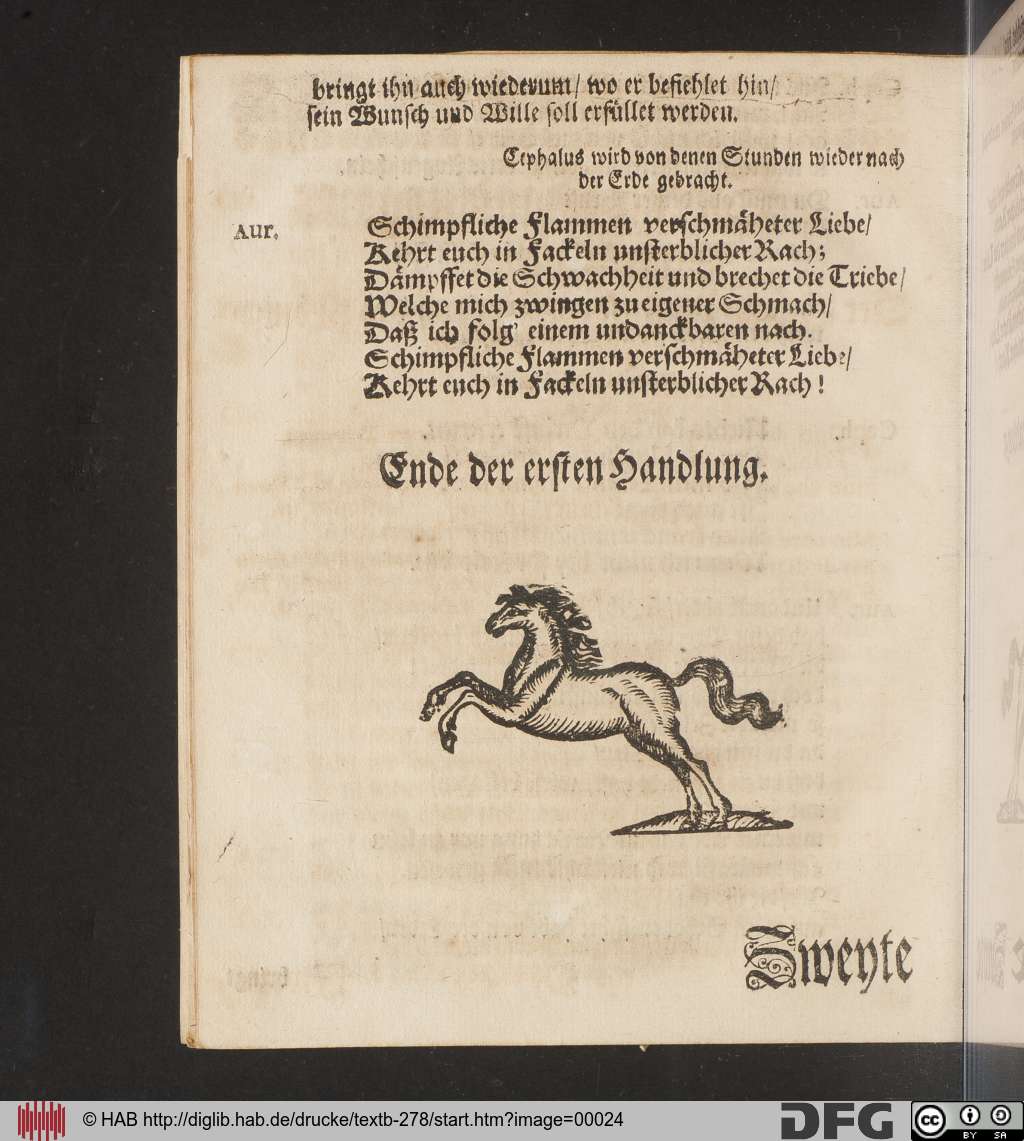 bringt ihn auch wiederum/ wo er befiehlet hin/
sein Wunsch und Wille soll erfüllet werden.
Cephalus wird von denen Stunden wieder nach
der Erde gebracht.
Aur. Schimpfliche Flammen verschmäheter Liebe/
Kehrt euch in Fackeln unsterblicher Rach;
Dämpffet die Schwachheit und brechet die Triebe/
Welche mich zwingen zu eigener Schmach/
Daß ich folg' einem undanckbaren nach.
Schimpfliche Flammen verschmäheter Liebe/
Kehrt euch in Fackeln unsterblicher Rach!
Ende der ersten Handlung.
Zweyte
© HAB http://diglib.hab.de/drucke/textb-278/start.htm?image=00024
DFG
cc BY SA